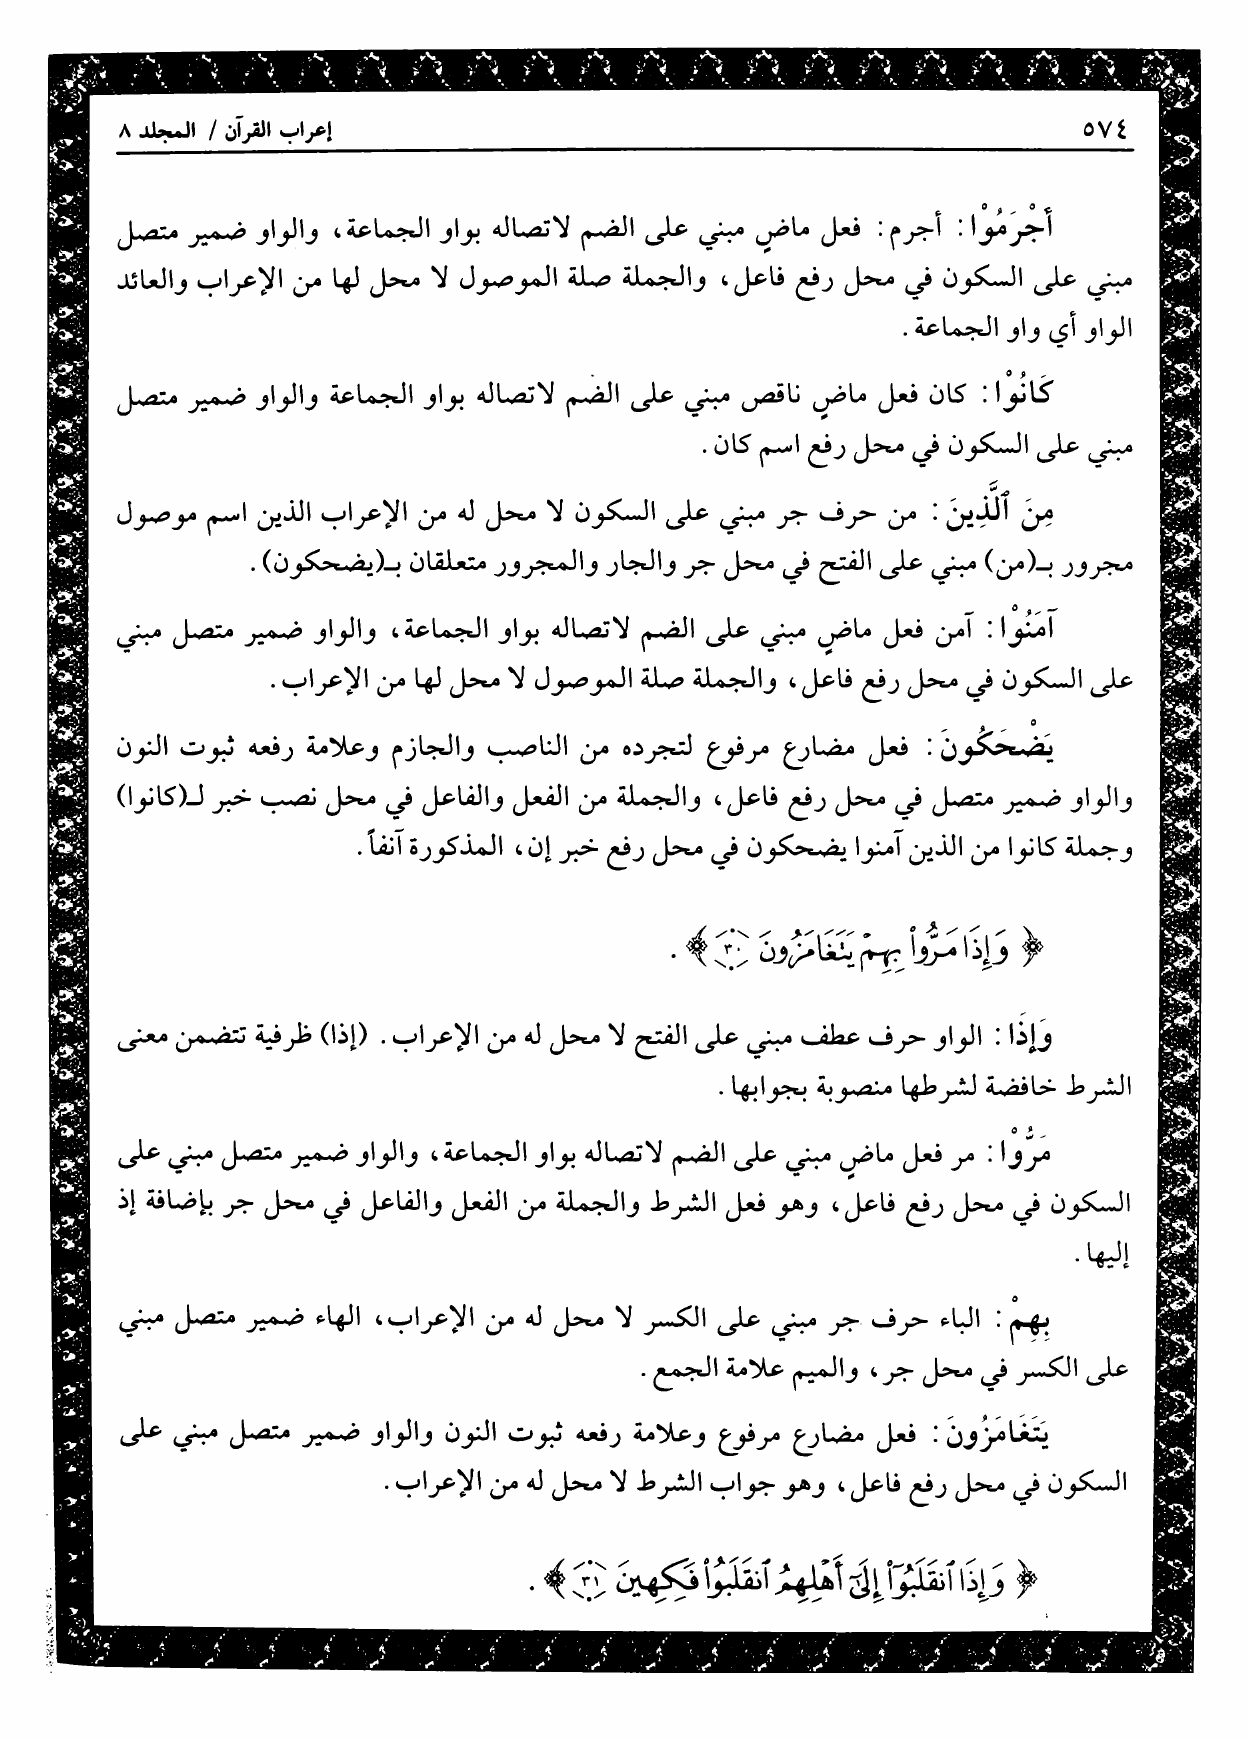 ٥٧٤
إعراب القرآن / المجلد ٨
أَجْرَمُوْا : أجرم : فعل ماضٍ مبني على الضم لاتصاله بواو الجماعة، والواو ضمير متصل
مبني على السكون في محل رفع فاعل، والجملة صلة الموصول لا محل لها من الإعراب والعائد
الواو أي واو الجماعة .
كَانُوْا : كان فعل ماضٍ ناقص مبني على الضم لاتصاله بواو الجماعة والواو ضمير متصل
مبني على السكون في محل رفع اسم كان .
مِنَ ٱلَّذِينَ : من حرف جر مبني على السكون لا محل له من الإعراب الذين اسم موصول
مجرور بـ(من) مبني على الفتح في محل جر والجار والمجرور متعلقان بـ(يضحكون) .
آمَنُوْا : آمن فعل ماضٍ مبني على الضم لاتصاله بواو الجماعة، والواو ضمير متصل مبني
على السكون في محل رفع فاعل، والجملة صلة الموصول لا محل لها من الإعراب .
يَضْحَكُونَ : فعل مضارع مرفوع لتجرده من الناصب والجازم وعلامة رفعه ثبوت النون
والواو ضمير متصل في محل رفع فاعل، والجملة من الفعل والفاعل في محل نصب خبر لـ(كانوا)
وجملة كانوا من الذين آمنوا يضحكون في محل رفع خبر إن، المذكورة آنفاً .
﴿ وَإِذَا مَرُّواْ بِهِمْ يَتَغَامَزُونَ ٣٠ ﴾ .
وَإِذَا : الواو حرف عطف مبني على الفتح لا محل له من الإعراب . (إذا) ظرفية تتضمن معنى
الشرط خافضة لشرطها منصوبة بجوابها .
مَرُّوْا : مر فعل ماضٍ مبني على الضم لاتصاله بواو الجماعة، والواو ضمير متصل مبني على
السكون في محل رفع فاعل، وهو فعل الشرط والجملة من الفعل والفاعل في محل جر بإضافة إذ
إليها .
بِهِمْ : الباء حرف جر مبني على الكسر لا محل له من الإعراب، الهاء ضمير متصل مبني
على الكسر في محل جر، والميم علامة الجمع .
يَتَغَامَزُونَ : فعل مضارع مرفوع وعلامة رفعه ثبوت النون والواو ضمير متصل مبني على
السكون في محل رفع فاعل، وهو جواب الشرط لا محل له من الإعراب .
﴿ وَإِذَا ٱنقَلَبُوٓاْ إِلَىٰٓ أَهْلِهِمُ ٱنقَلَبُواْ فَكِهِينَ ٣١ ﴾ .